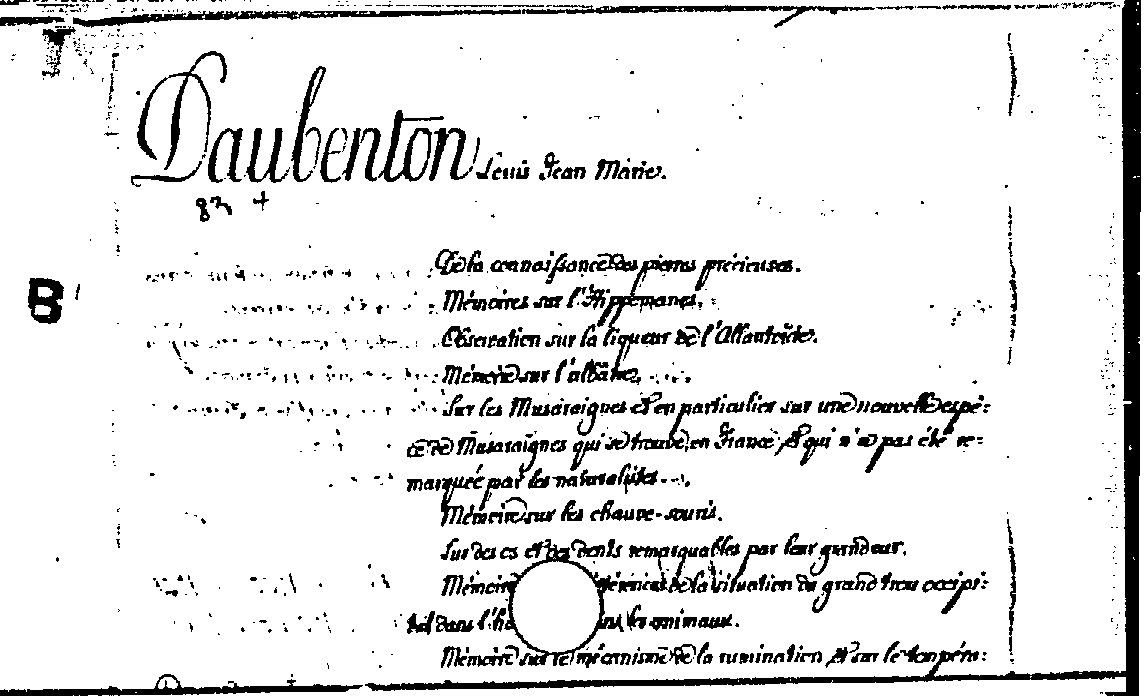 Daubenton Louis Jean Marie.
83 +
De la connaissance des pierres précieuses.
B
Mémoires sur l'Hippomanes.
Observation sur la liqueur de l'Allantoïde.
Mémoire sur l'albâtre.
Sur les Musaraignes et en particulier sur une nouvelle espè:
ce de Musaraignes qui se trouve en France, et qui n'a pas été re:
marquée par les naturalistes.
Mémoire sur les chauve-souris.
Sur des os et des dents remarquables par leur grandeur.
Mémoire de la situation du grand trou occipi:
tal dans l'ho les animaux.
Mémoire sur le mécanisme de la rumination et sur le tempéra: